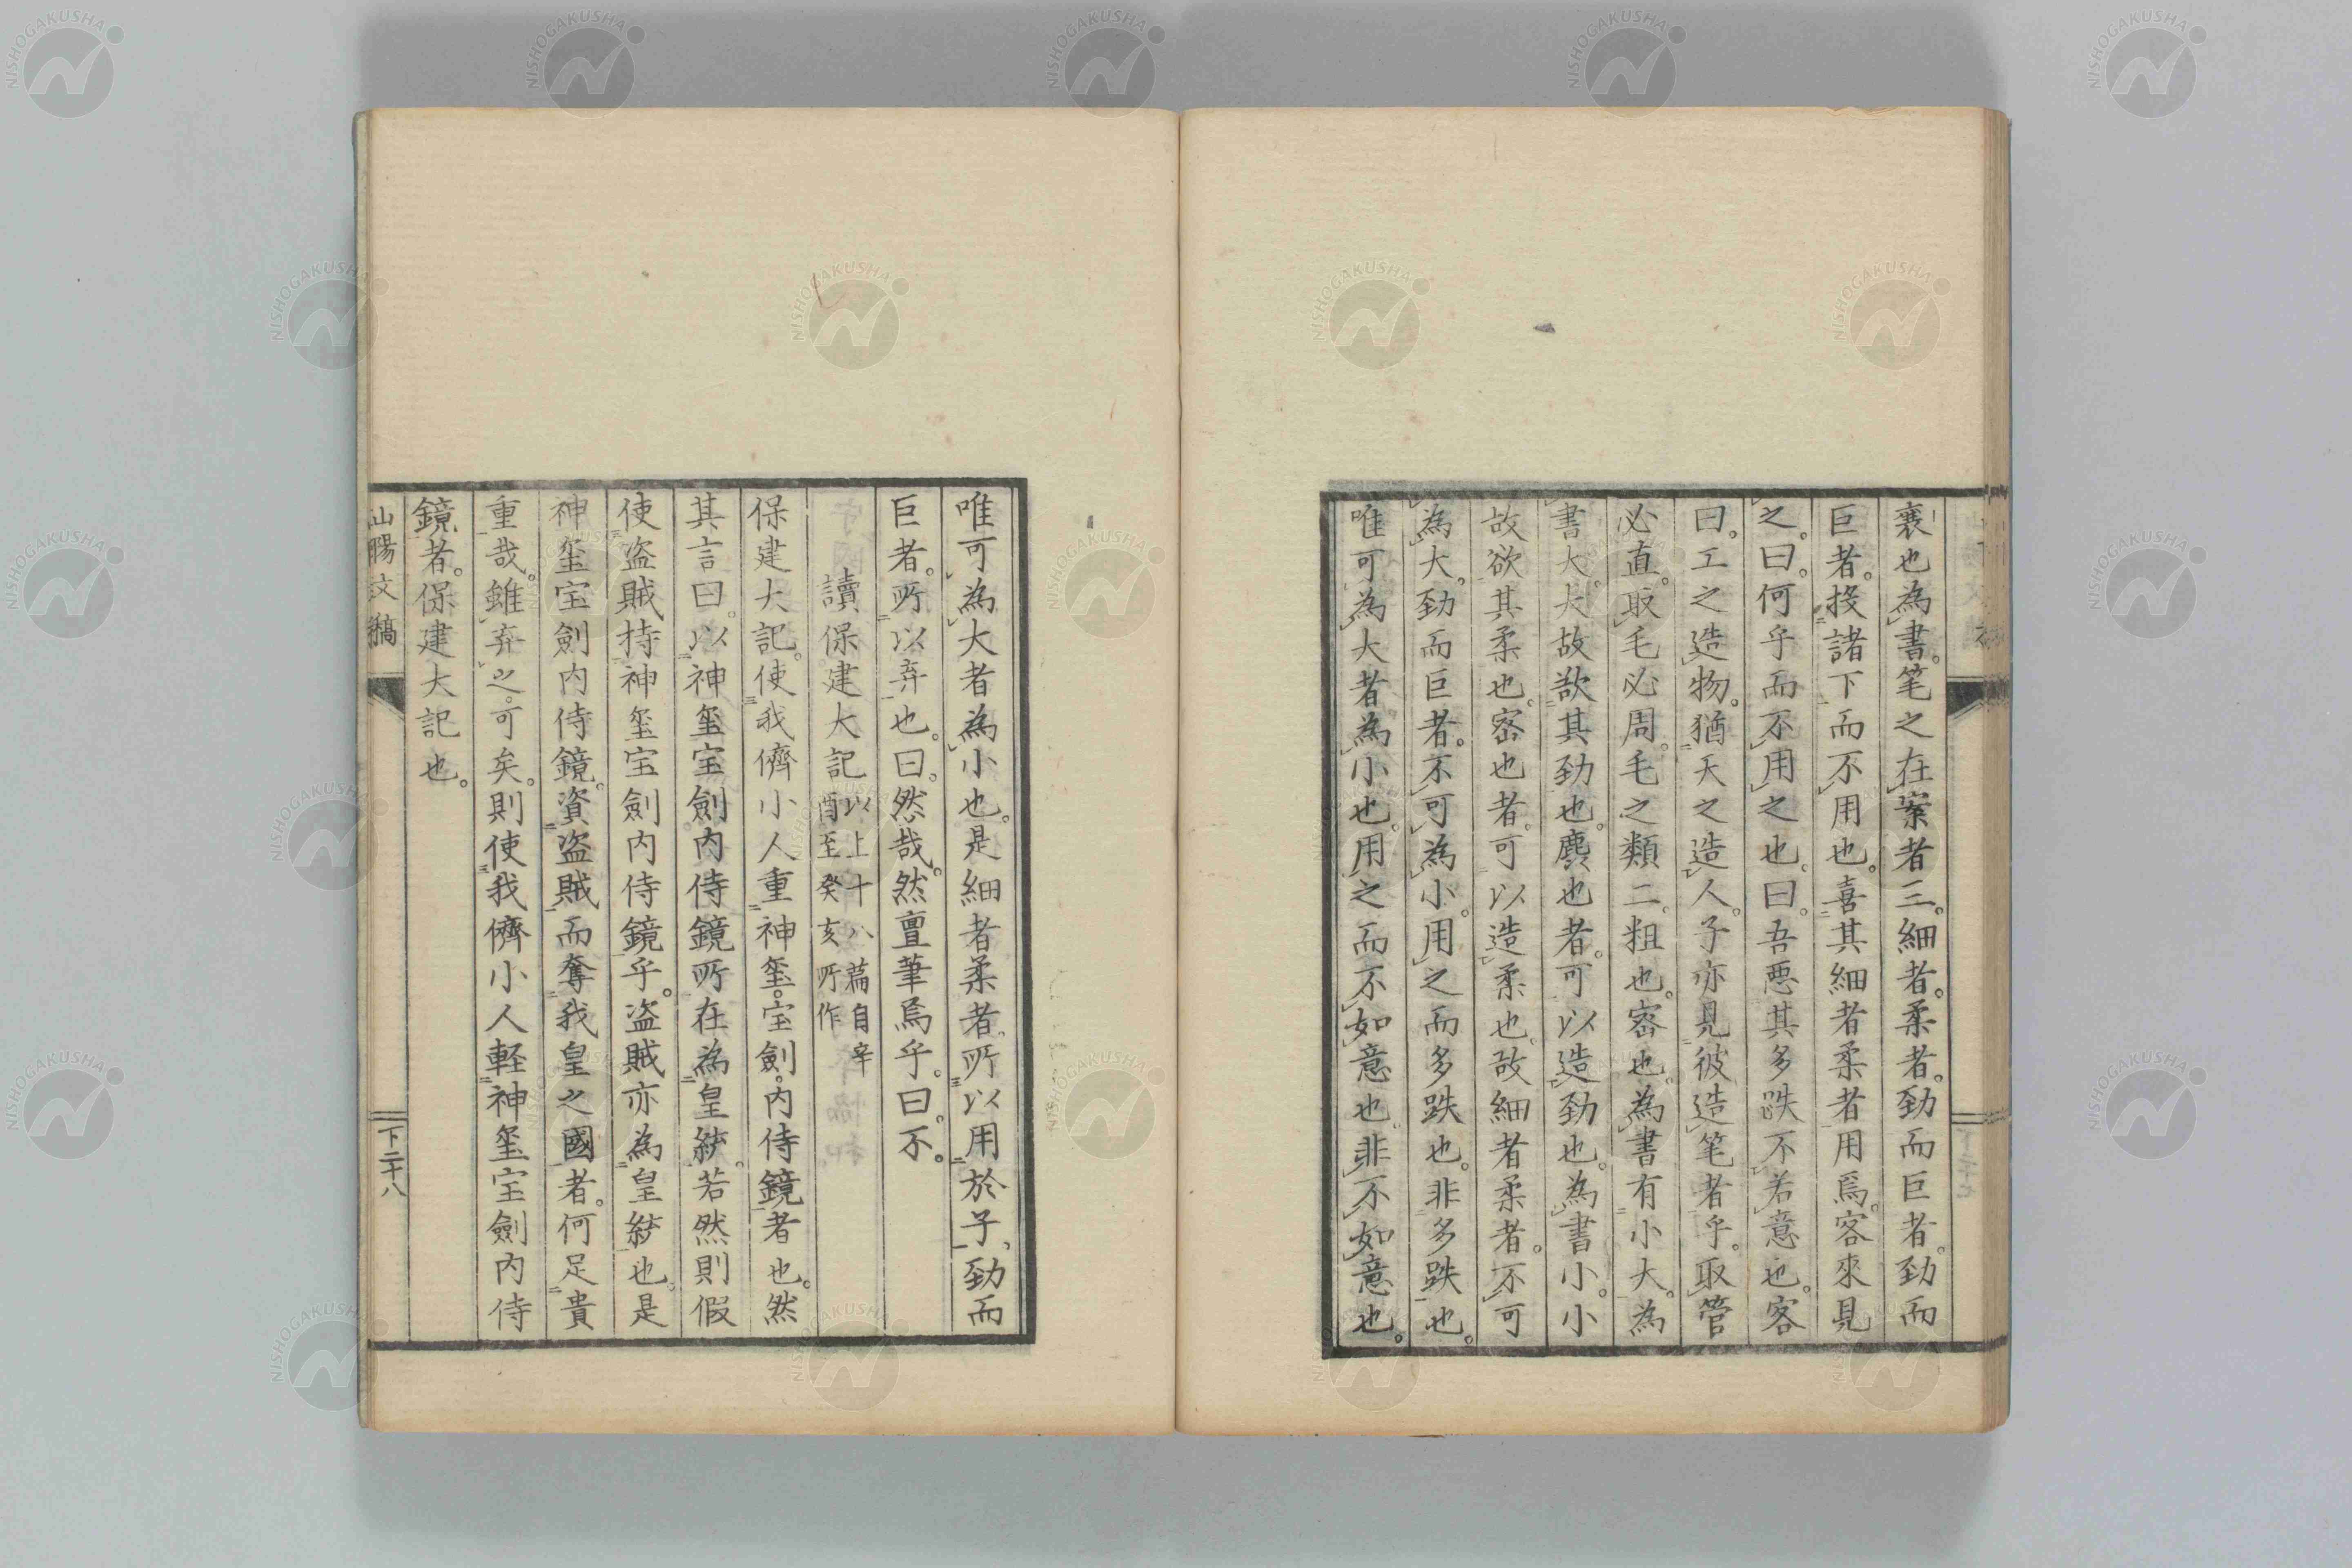 襄也為書。笔之在案者三。細者。柔者。勁而巨者。勁而
巨者。投諸下而不用也。喜其細者柔者用焉。客來見
之。曰。何乎而不用之也。曰。吾悪其多跌不若意也。客
曰。工之造物。猶天之造人。子亦見彼造笔者乎。取管
必直。取毛必周。毛之類二。粗也。密也。為書有小大。為
書大。大故欲其勁也。麤也者。可以造勁也。為書小。小
故欲其柔也。密也者。可以造柔也。故細者柔者。不可
為大。勁而巨者。不可為小。用之而多跌也。非多跌也。
唯可為大者為小也。用之而不如意也。非不如意也。
唯可為大者為小也。是細者柔者。所以用於子。勁而
巨者。所以弃也。曰。然哉。然亶筆焉乎。曰。不。
讀保建大記 以上十八篇自辛
酉至癸亥所作
保建大記。使我儕小人重神玺。宝劍。内侍鏡者也。然
其言曰。以神玺宝劍内侍鏡所在為皇統。若然則假
使盗賊持神玺宝劍内侍鏡乎。盗賊亦為皇統也。是
神玺宝劍内侍鏡。資盗賊而奪我皇之國者。何足貴
重哉。雖弃之。可矣。則使我儕小人軽神玺宝劍内侍
鏡者。保建大記也。
山陽文稿
下二十八
NISHOGAKUSHA